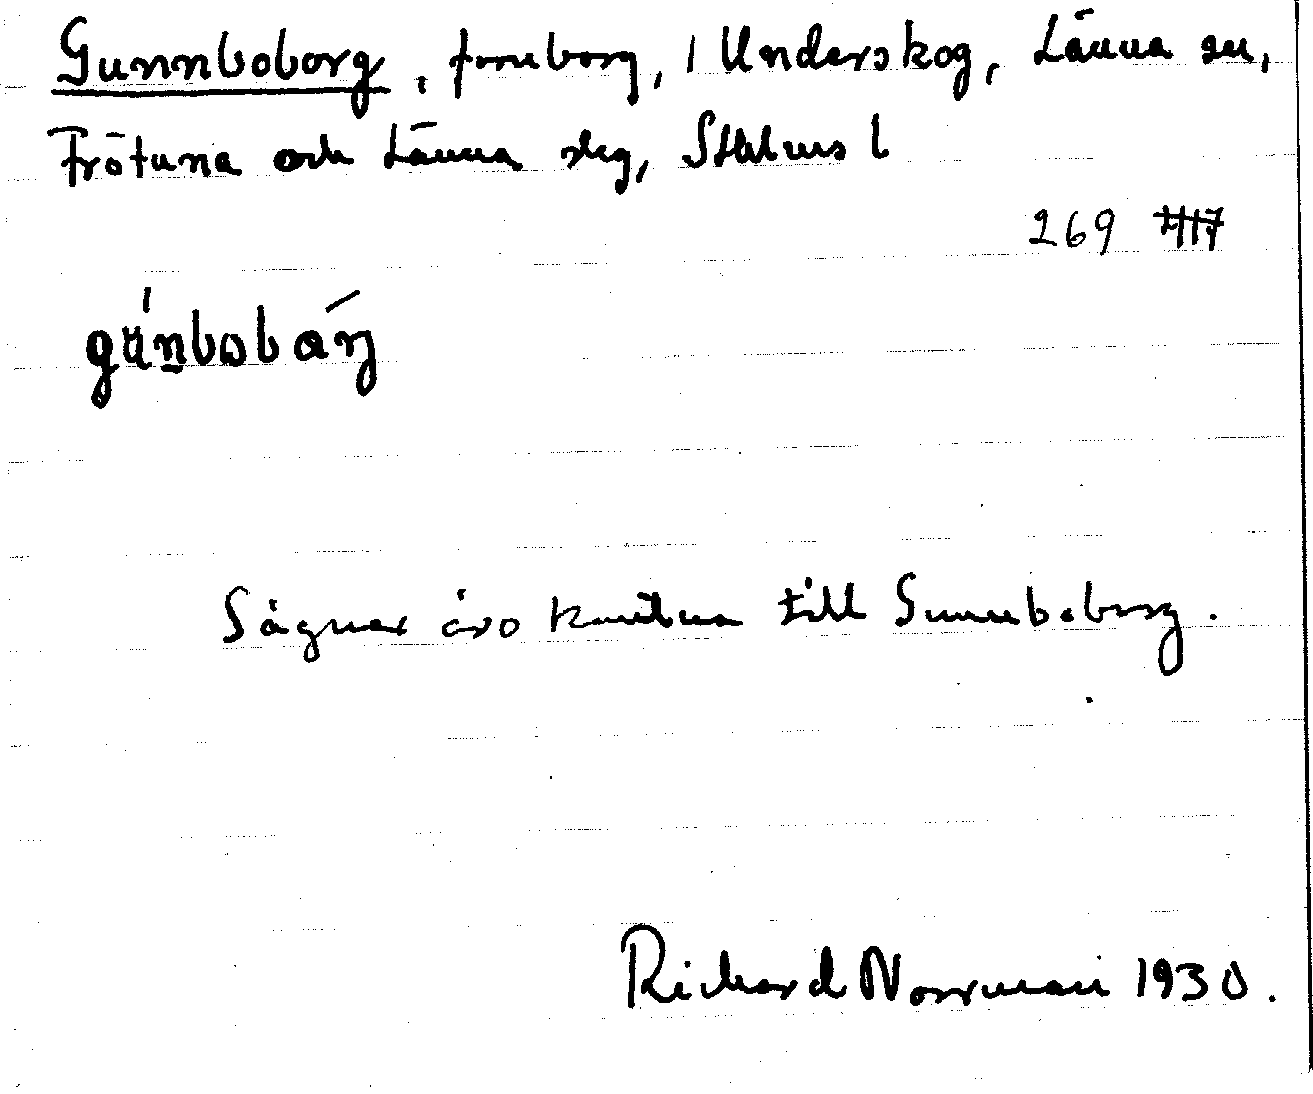 Gunnboborg, fornborg, i Underskog, Länna sn,
Frötuna och Länna skg, Sthlms l
269
gu̍nbobórj
Sägner äro knutna till Gunnboborg.
Richard Norrman 1930.